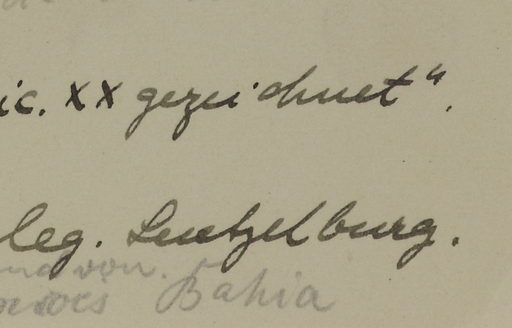 ic. XX gezeichnet“.
leg. Luetzelburg.
von.
Bahia